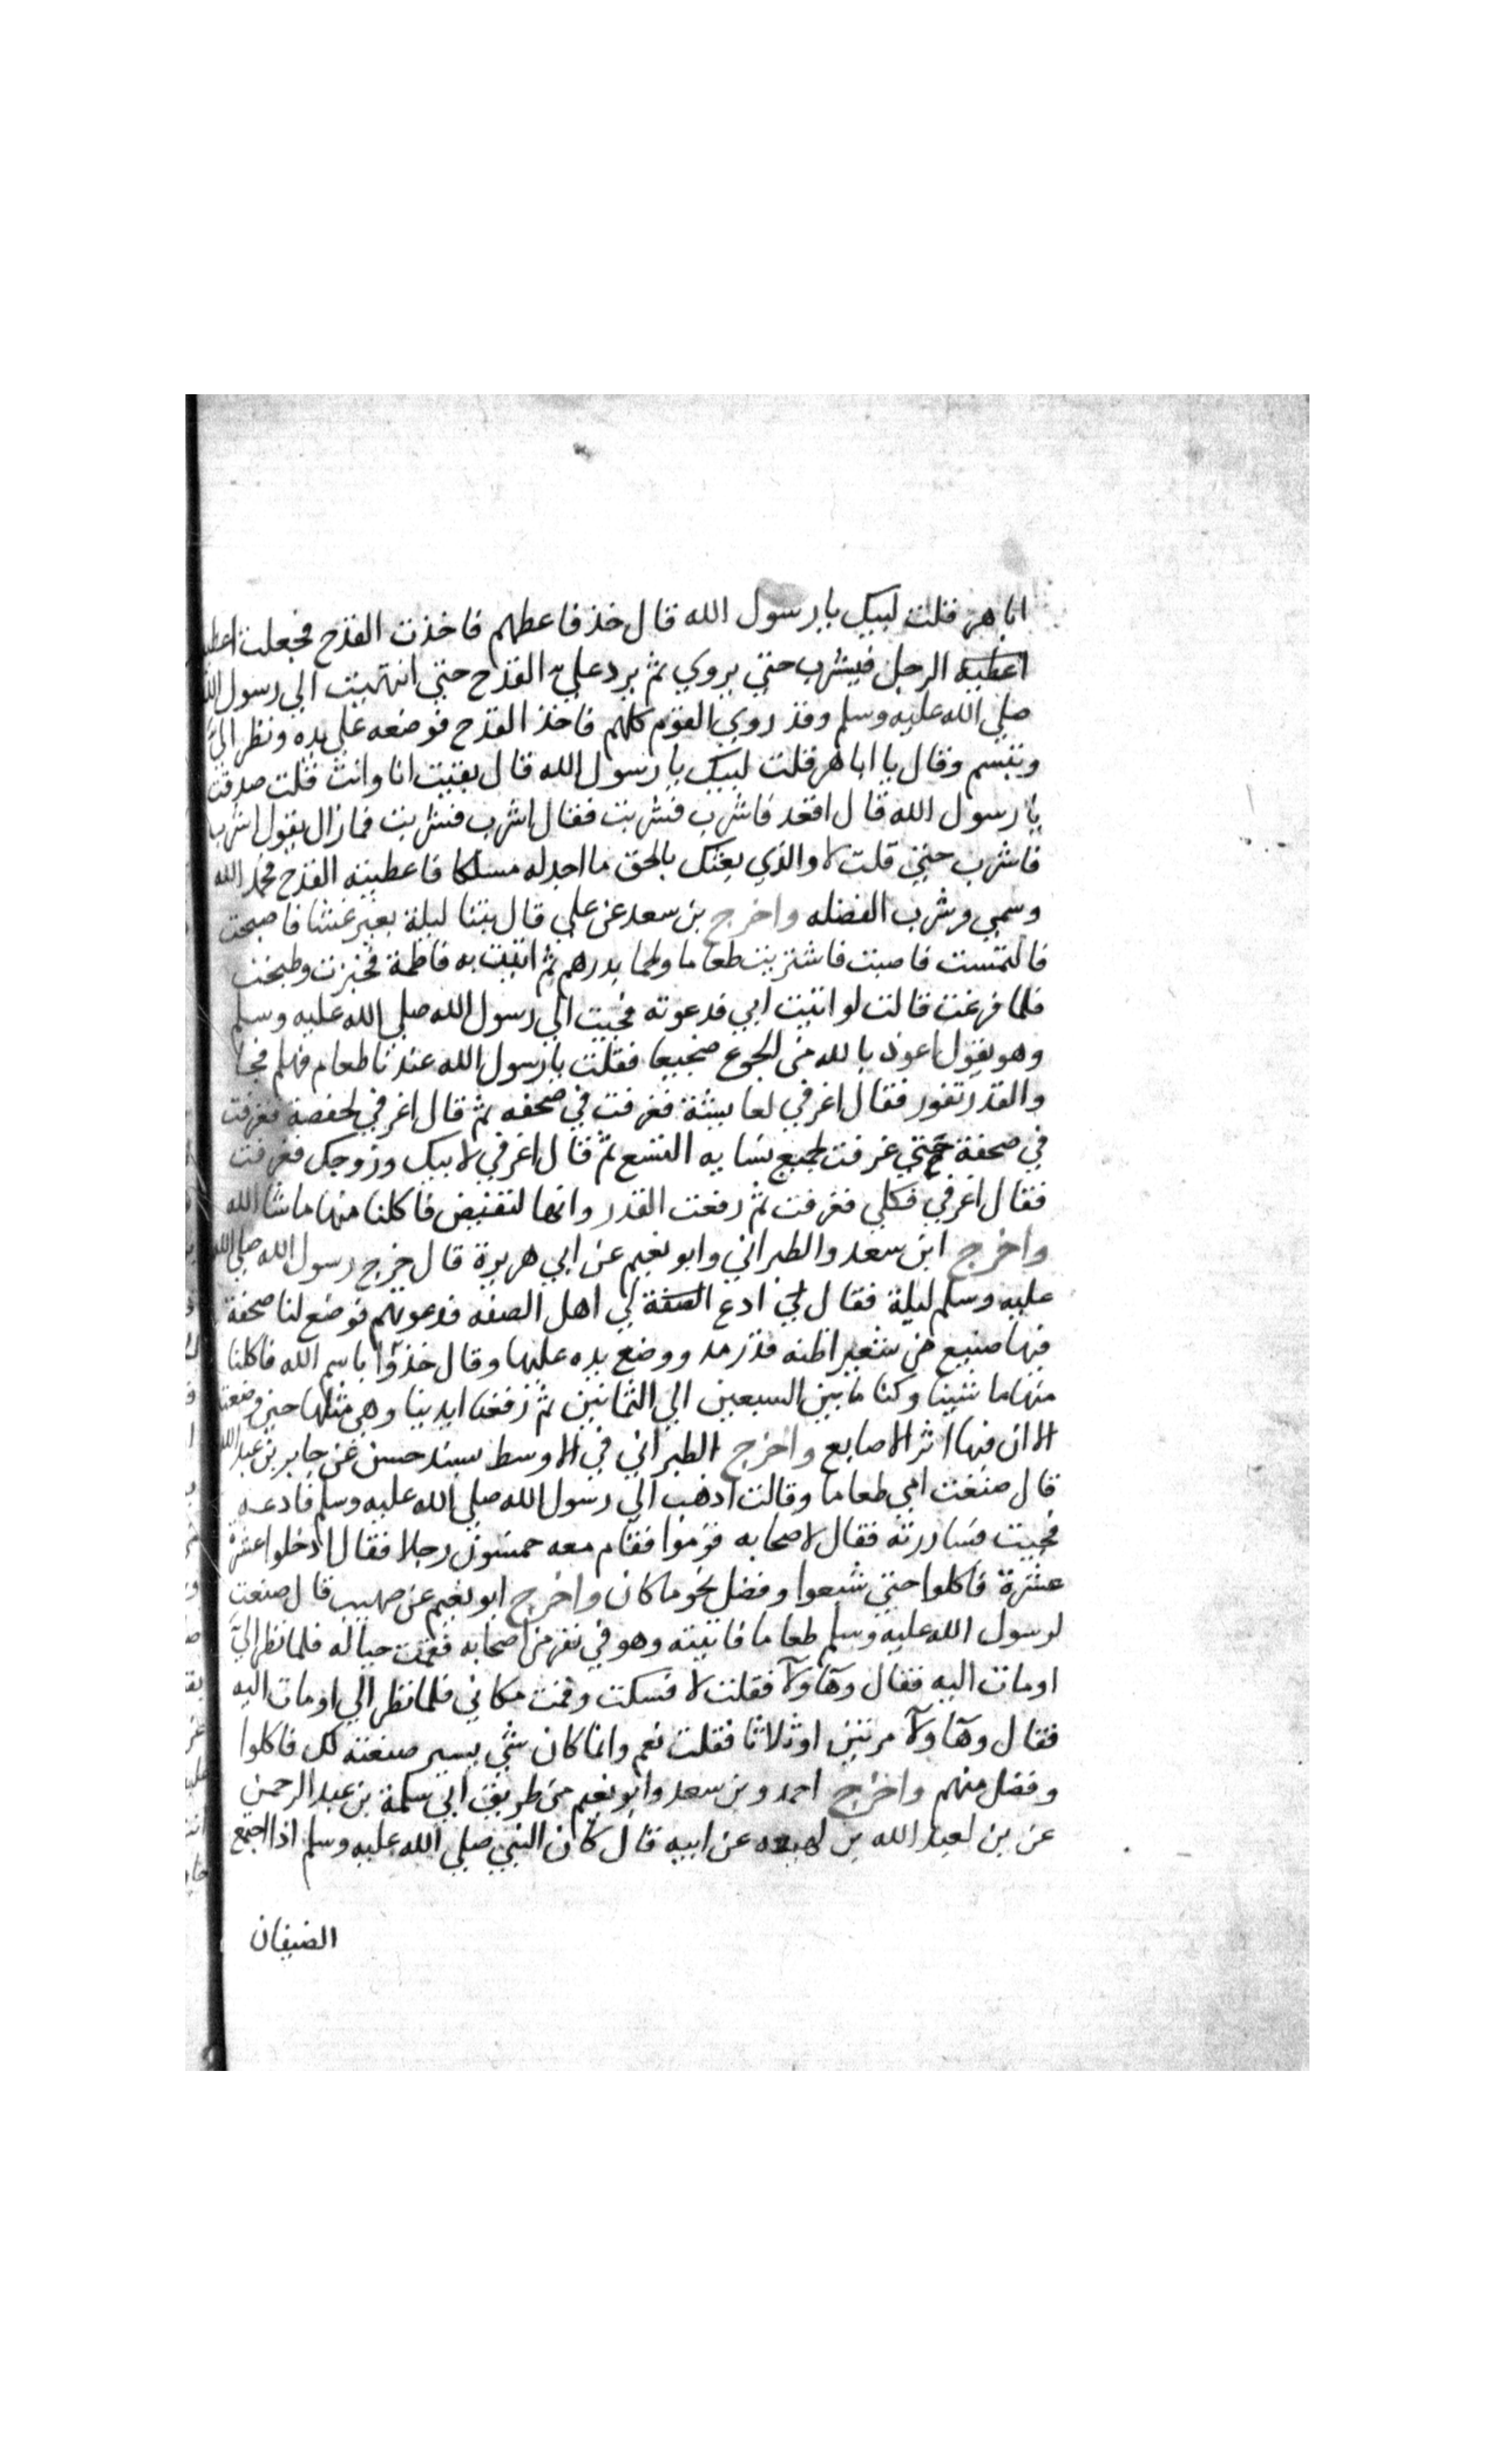 ابا هر قلت لبيك يا رسول الله قال خذ فاعطهم فاخذت القدح فجعلت اعطيه
اعطيه الرجل فيشرب حتي يروي ثم يرد علي القدح حتي انتهيت الي رسول الله
صلي الله عليه وسلم وقد روي القوم كلهم فاخذ القدح فوضعه علي يده ونظر الي
وتبسم وقال يا ابا هر قلت لبيك يا رسول الله قال بقيت انا وانت قلت صدقت
يا رسول الله قال اقعد فاشرب فشربت فقال اشرب فشربت فمازال يقول اشرب
فاشرب حتي قلت لا والذي بعثك بالحق ما اجد له مسلكا فاعطيته القدح فحمد الله
وسمي وشرب الفضله واخرج بن سعد عن علي قال بتنا ليلة بغير عشا فاصبحت
فالتمست فاصبت فاشتريت طعاما ولحما بدرهم ثم اتيت به فاطمة فخبزت وطبخت
فلما فرغت قالت لو اتيت ابي فدعوته فجيت الي رسول الله صلي الله عليه وسلم
وهو يقول اعوذ بالله من الجوع ضجيعا فقلت يا رسول الله عندنا طعام فهلم فجا
والقدر تفور فقال اغرفي لعايشة فغرفت في صحفه ثم قال اغرفي لحفصة فغرفت
في صحفة حتي غرفت لجميع نسايه التسع ثم قال اغرفي لابيك وزوجك فغرفت
فقال اغرفي فكلي فغرفت ثم رفعت القدر وانها لتفيض فاكلنا منها ماشا الله
واخرج ابن سعد والطبراني وابو نعيم عن ابي هريرة قال خرج رسول الله صلي الله
عليه وسلم ليلة فقال لي ادع الصفة لي اهل الصفه فدعوتهم فوضع لنا صحفة
فيها صنيع من شعير اظنه قدر مد ووضع يده عليها وقال خذوا باسم الله فاكلنا
منها ما شينا وكنا ما بين السبعين الي الثمانين ثم رفعنا ايدينا وهي مثلها حين وضعت
الا ان فيها اثر الاصابع واخرج الطبراني في الاوسط بسند حسن عن جابر بن عبد الله
قال صنعت امي طعاما وقالت اذهب الي رسول الله صلي الله عليه وسلم فادعه
فجيت فساررته فقال لاصحابه قوموا فقام معه خمسون رجلا فقال ادخلوا عشرة
عشرة فاكلوا حتي شبعوا وفضل نحو ما كان واخرج ابو نعيم عن صهيب قال صنعت
لرسول الله عليه وسلم طعاما فاتيته وهو في نفر من اصحابه فقمت حياله فلما نظر الي
اومات اليه فقال وهاولآ فقلت لا فسكت وقمت مكاني فلما نظر الي اومات اليه
فقال وهاولآ مرتين او ثلاثا فقلت نعم وانما كان شي يسير صنعته لك فاكلوا
وفضل منهم واخرج احمد وبن سعد وابو نعيم من طريق ابي سلمة بن عبد الرحمن
عن بن لعبد الله بن عن ابيه قال كان النبي صلي الله عليه وسلم اذا اجتمع
الضيفان